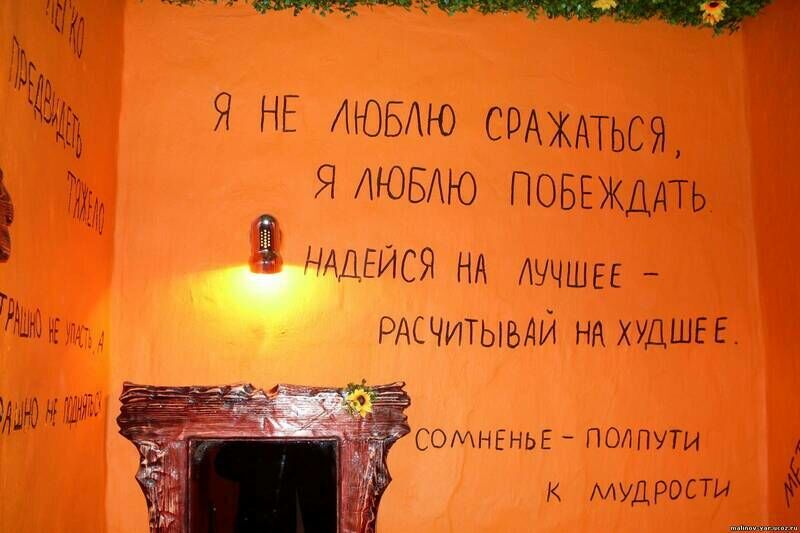 ЛЕГКО
ПРЕДВИДЕТЬ
ТЯЖЕЛО
ТРАШНО НЕ УПАСТЬ, А
АШНО НЕ ПОДНЯТЬСЯ
Я НЕ ЛЮБЛЮ СРАЖАТЬСЯ,
Я ЛЮБЛЮ ПОБЕЖДАТЬ.
НАДЕЙСЯ НА ЛУЧШЕЕ –
РАСЧИТЫВАЙ НА ХУДШЕЕ.
СОМНЕНЬЕ – ПОЛПУТИ
К МУДРОСТИ
malinov-yar.ucoz.ru